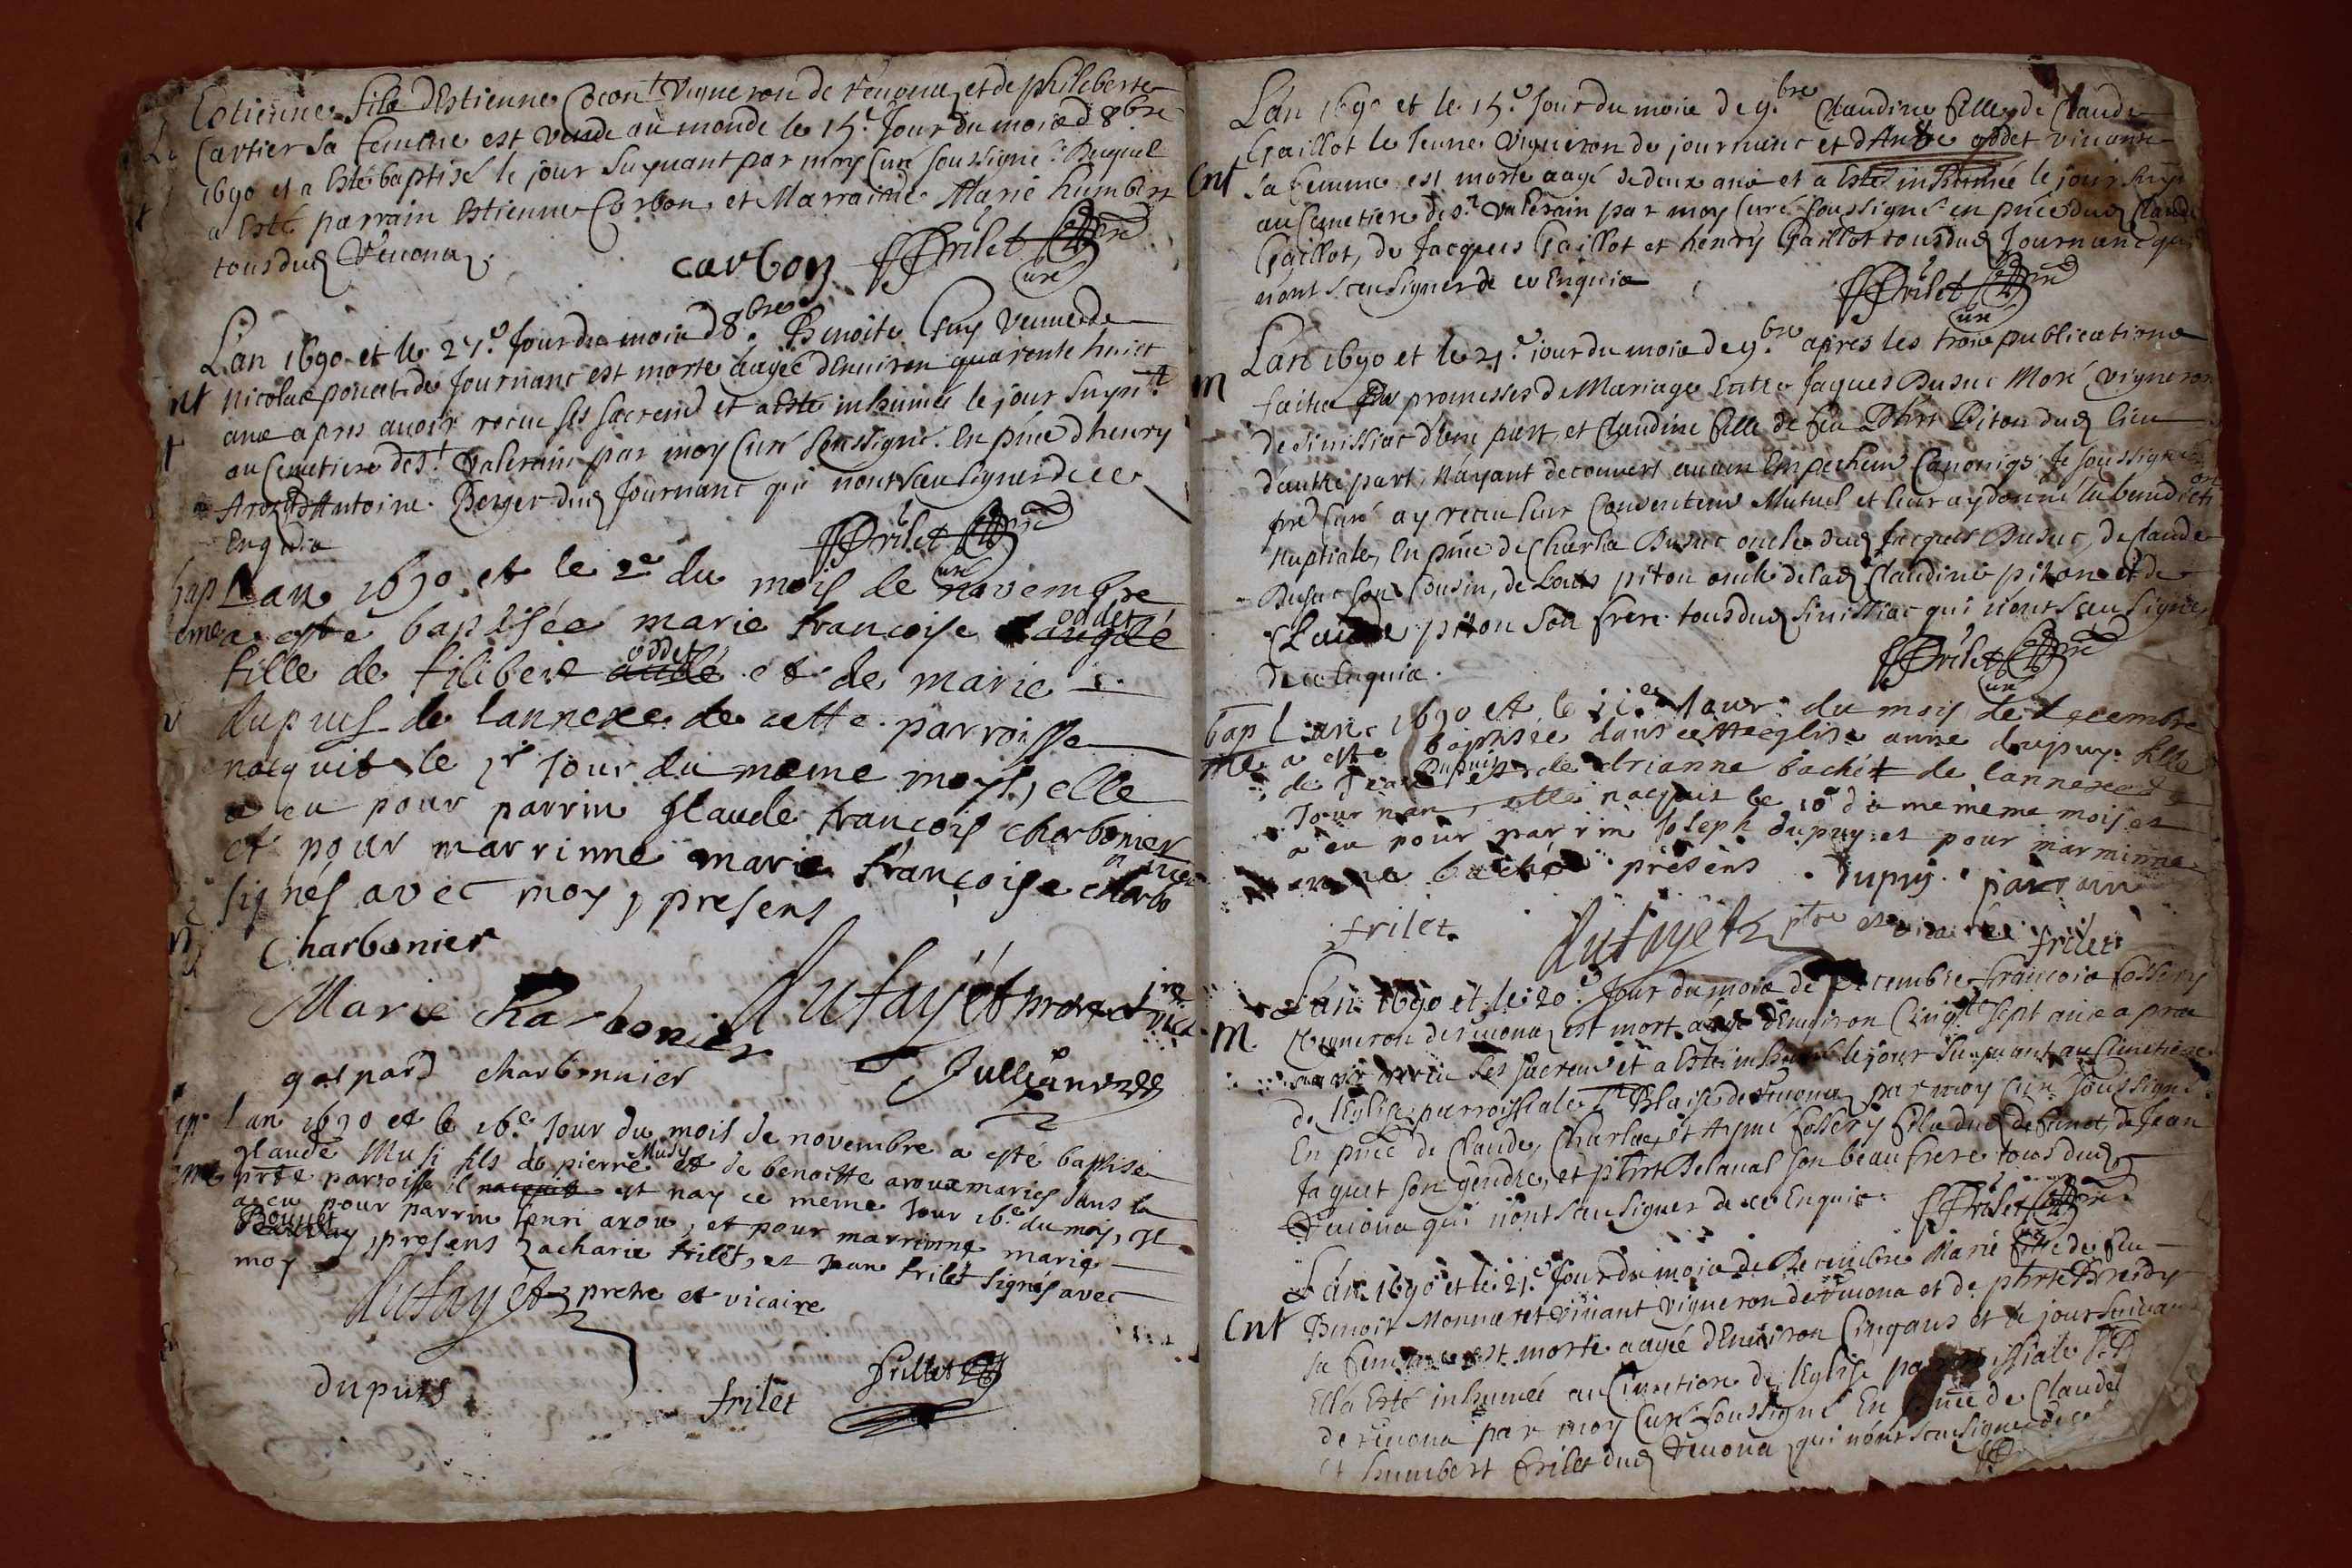 Estienne fils d'Estienne Cocont vigneron de reuona et de philiberte
Cartier sa femme est venu au monde le 15.e Jour du mois d 8bre
1690 et a Esté baptisé le jour suyuant par moy Curé soussigné Duquel
a Esté parrain Estienne Corbon et Marraine Marie humbert
tous dud reuona
carbon ffrilet pre
Curé
Lan 1690 et le 27.e Jour du mois d 8bre Benoite Guy veuue de
nt Nicolas ponat de Journanc est morte aagée d'Enuiron quarente huict
ans apres auoir receu ses sacremd et a esté inhumée le jour suyunt
au Cemetiere de st Valerain par moy Curé soussigné. En pñce d henry
Aroz d'Antoine Berger dud Journanc qui n'ont sceu signer de ce
Enquis
ffrilet pre
Curé
bap Lan 1690 et le 2e du mois de novembre
eme a esté baptisée marie francoise oddet
fille de filibert oddet et de marie
dupuis de lannexe de cette parroisse
nacquit le 1r Jour du meme moys, elle
a eu pour parrin glaude francois charbonier
et pour marrinne marie francoise charbo
nier
signés avec moy, presens
Charbonier
Marie charbonier dufayet pretre et vic
gaspard charbonnier Jullianez
Lan 1690 et le 16.e Jour du mois de novembre a esté baptisé
glaude Musi fils de pierre Musy et de benoitte aroux mariés dans la
prte parroisse il nacquit est nay ce meme Jour 16e du mois, Il
a eu pour parrin henri arou, et pour marrinne marie
presens Zacharie frilet, et Jean frilet signés avec
moy
dufayet pretre et vicaire
dupuis frilet frillet
Lan 1690 et le 15.e Jour du mois de 9.bre Claudine fille de Claude
Gaillot le Jeune vigneron de journanc et d'Andre oddet viuante
Ent sa femme est morte aagé de deux ans et a Esté inhumée le jour suyu
au Cemetiere de st Valerain par moy Curé soussigné en pñce dud Claude
Gaillot, de Jacques Gaillot et henry Gaillot tous dud Journanc qui
n'ont sceu signer de ce Enquis
ffrilet pre
Curé
Lan 1690 et le 21.e jour du mois de 9.bre apres les trois publications
m faites des promesses de Mariage Entre Jaques Dusuc Moré vigneron
de Simissiac d'une part, et Claudine fille de feu Phbrt Piton dud lieu
d'autre part, N'ayant decouvert aucun Empechemt Canoniqs Je soussigné
pre Curé ay receu leur Consentemt Mutuel et leur ay donné la benedicti
on
Nuptiale, En pñce de Charles Dusuc oncle dud Jacques Dusuc, de Claude
Dusuc son Cousin, de Louis piton oncle de lad Claudine piton et de
Claude piton son frere tous dud Simissiac qui n'ont sceu signer
de ce Enquis.
ffrilet pre
Curé
bap Lan 1690 et le 11e Jour du mois de decembre
me a esté baptisée dans cette eglise anne dupuy fille
de Jean Dupuis et de drianne bachet de lannexe de
Journan, elle nacquit le 10e du meme mois et
a eu pour parrin Joseph dupuy et pour marrinne
bachet presens dupuy parrain
frilet dufayet ptre et vicaire frilet
Lan 1690 et le 20.e Jour du mois de decembre francois fossery
m vigneron de reuona est mort aagé d'Enuiron Cinqte sept ans apres
auoir receu ses sacremt et a Esté inhumé le jour suyuant au Cimetiere
de l'Eglise parroissiale st Blaise de reuona par moy Curé soussigné
En pñce de Claude, Charles, et Aymé fossery fils dud defunct, de Jean
Jaquet son gendre, et phbrt Delaual son beau frere tous dud
Reuona qui n'ont sceu signer de ce Enquis.
ffrilet pre
Curé
Lan 1690 et le 21.e Jour du mois de Decembre Marie fille de feu
Ent Benoit Monnaret viuant vigneron de reuona et de phbrte
sa femme est morte aagée d'Enuiron Cinq ans et le jour suiuant
Ell'a Esté inhumée au Cimetiere de l'Eglise parroissiale
de reuona par moy Curé soussigné En pñce de Claude
et humbert frilet dud Reuona qui n'ont sceu signer de ce